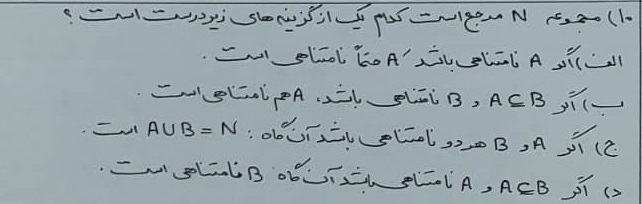 ۱۰) مجموعه N مرجع است کدام یک از گزینه های زیر درست است ؟
الف) اگر A نامتناهی باشد A′ حتماً نامتناهی است .
ب) اگر A⊆B و B نامتناهی باشد، A هم نامتناهی است .
ج) اگر A و B هر دو نامتناهی باشد آن گاه : A∪B = N است .
د) اگر A⊆B و A نامتناهی باشد آن گاه B نامتناهی است .